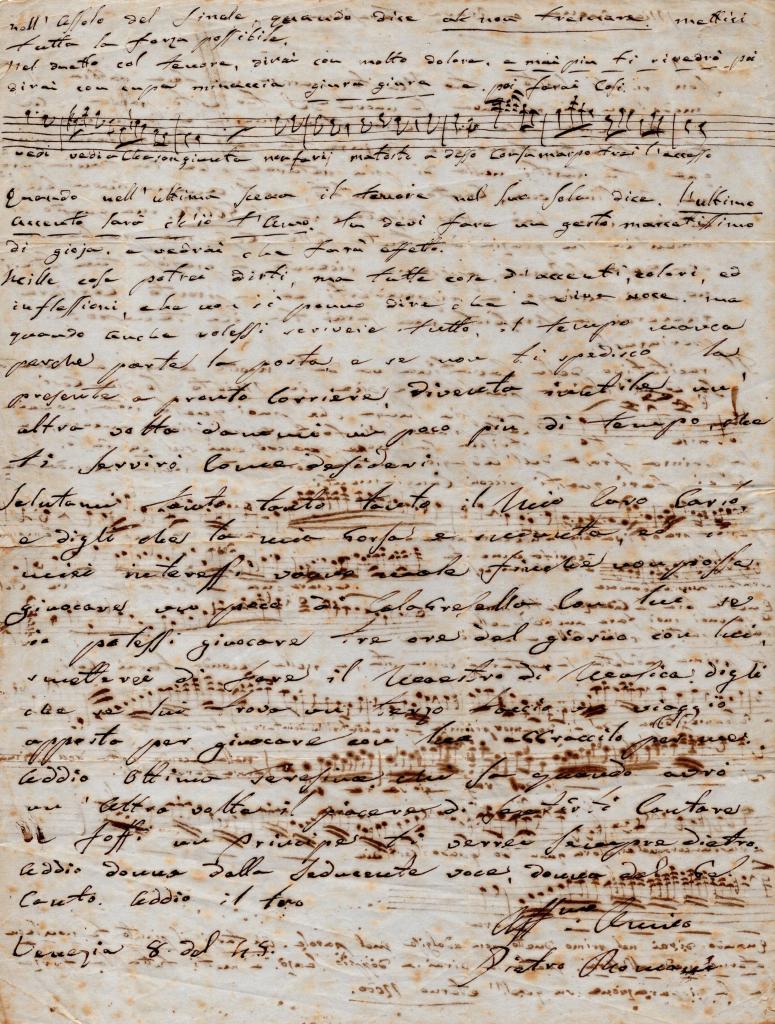 nell' assolo del Finale, quando dice ah non tremare. mettici
tutta la forza possibile.
Nel duetto col tenore, dirai con molto dolore, e mai più ti rivedrò poi
dirai con cupa minaccia giura giura e poi farai così.
vedi vedi a
Quando nell' ultima scena il tenore nel suo solo dice. l'ultimo
accento sarà ch'io t'amo. tu devi fare un gesto marcatissimo
di gioja. e vedrai che farà effetto.
Mille cose potrei dirti, ma tutte cose d'accenti, colori, ed
inflessioni, che non si ponno dire che a viva voce. ma
quando anche volessi scrivere tutto, il tempo manca
perche parte la posta, e se non ti spedisco la
presente a pronto Corriere, diventa inutile. un'
altra volta dammi un poco più di tempo, che
ti servirò come desideri.
Salutami tanto tanto tanto il mio caro Carlo,
e digli che la mia borsa e e i
miei interessi vanno male finche non posso
giuocare un poco di Calabresella con lui. se
io potessi giuocare tre ore del giorno con lui,
smetterei di fare il Maestro di Musica. digli
che se lui trova un terzo faccio un viaggio
apposta per giuocare con lui. abbraccilo per me.
Addio ottima Teresina, chi sa quando avrò
un' altra volta il piacere di sentirti Cantare
Se fossi un Principe ti verrei sempre dietro.
Addio donna dalla seducente voce, donna del bel
Canto. Addio il tuo
Affmo Amico
Venezia 8. del 48.
Pietro Romani